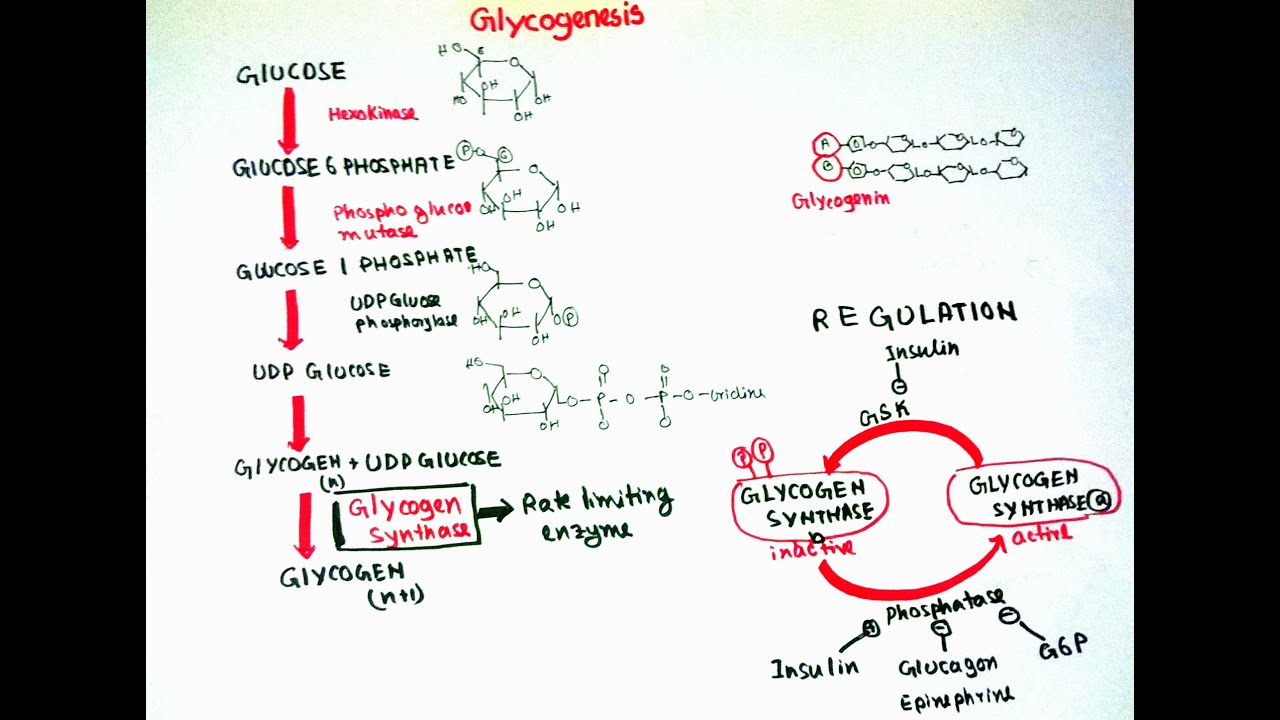 Glycogenesis
GLUCOSE
Hexokinase
HO
6
O
OH
HO
OH
OH
GLUCOSE 6 PHOSPHATE
P
O
6
O
OH
OH
OH
OH
Phospho glucose
mutase
GLUCOSE 1 PHOSPHATE
HO
O
OH
OH
O P
OH
UDP Glucose
phosphorylase
UDP GLUCOSE
HO
O
OH
OH
OH
O-P-O-P-O-Uridine
O
O
O
O
GLYCOGEN + UDP GLUCOSE
(n)
Glycogen
Synthase
Rate limiting
enzyme
GLYCOGEN
(n+1)
A
B
Glycogenin
REGULATION
Insulin
-
GSK
P P
GLYCOGEN
SYNTHASE
b
inactive
GLYCOGEN
SYNTHASE a
active
Phosphatase
+
-
-
Insulin
Glucagon
Epinephrine
G6P